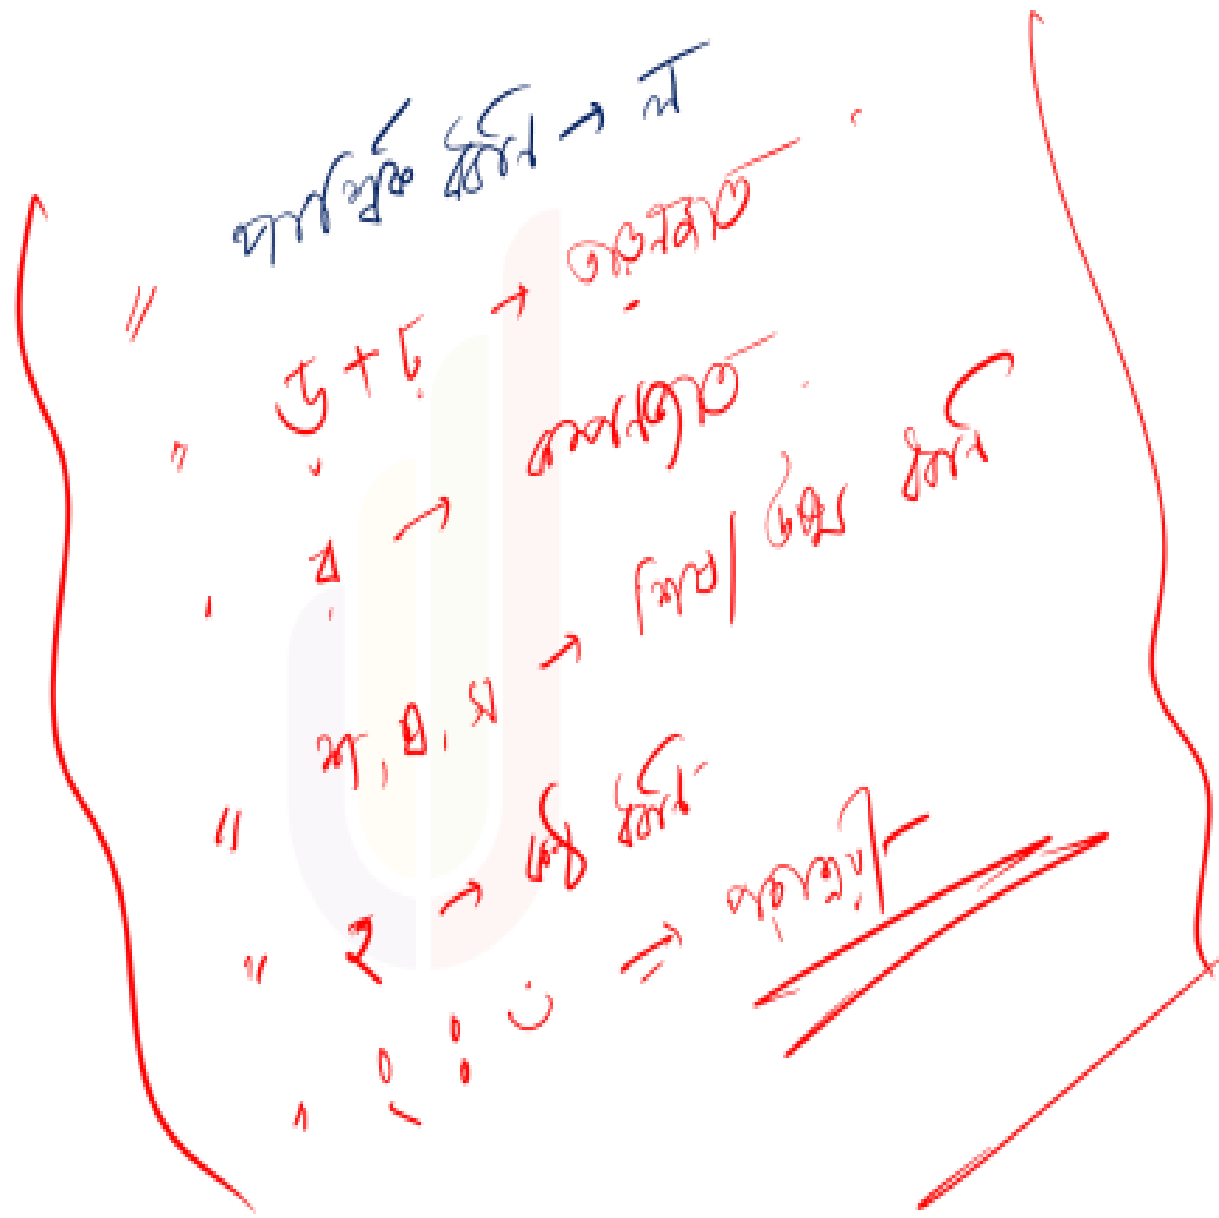 পার্শ্বিক ধ্বনি → ল
" ড়+ঢ় → তাড়নজাত
" র → কম্পনজাত
" শ, ষ, স → শিষ/উষ্ম ধ্বনি
" হ → উষ্ম ধ্বনি
" ং ঃ ঁ ⇒ পরাশ্রয়ী